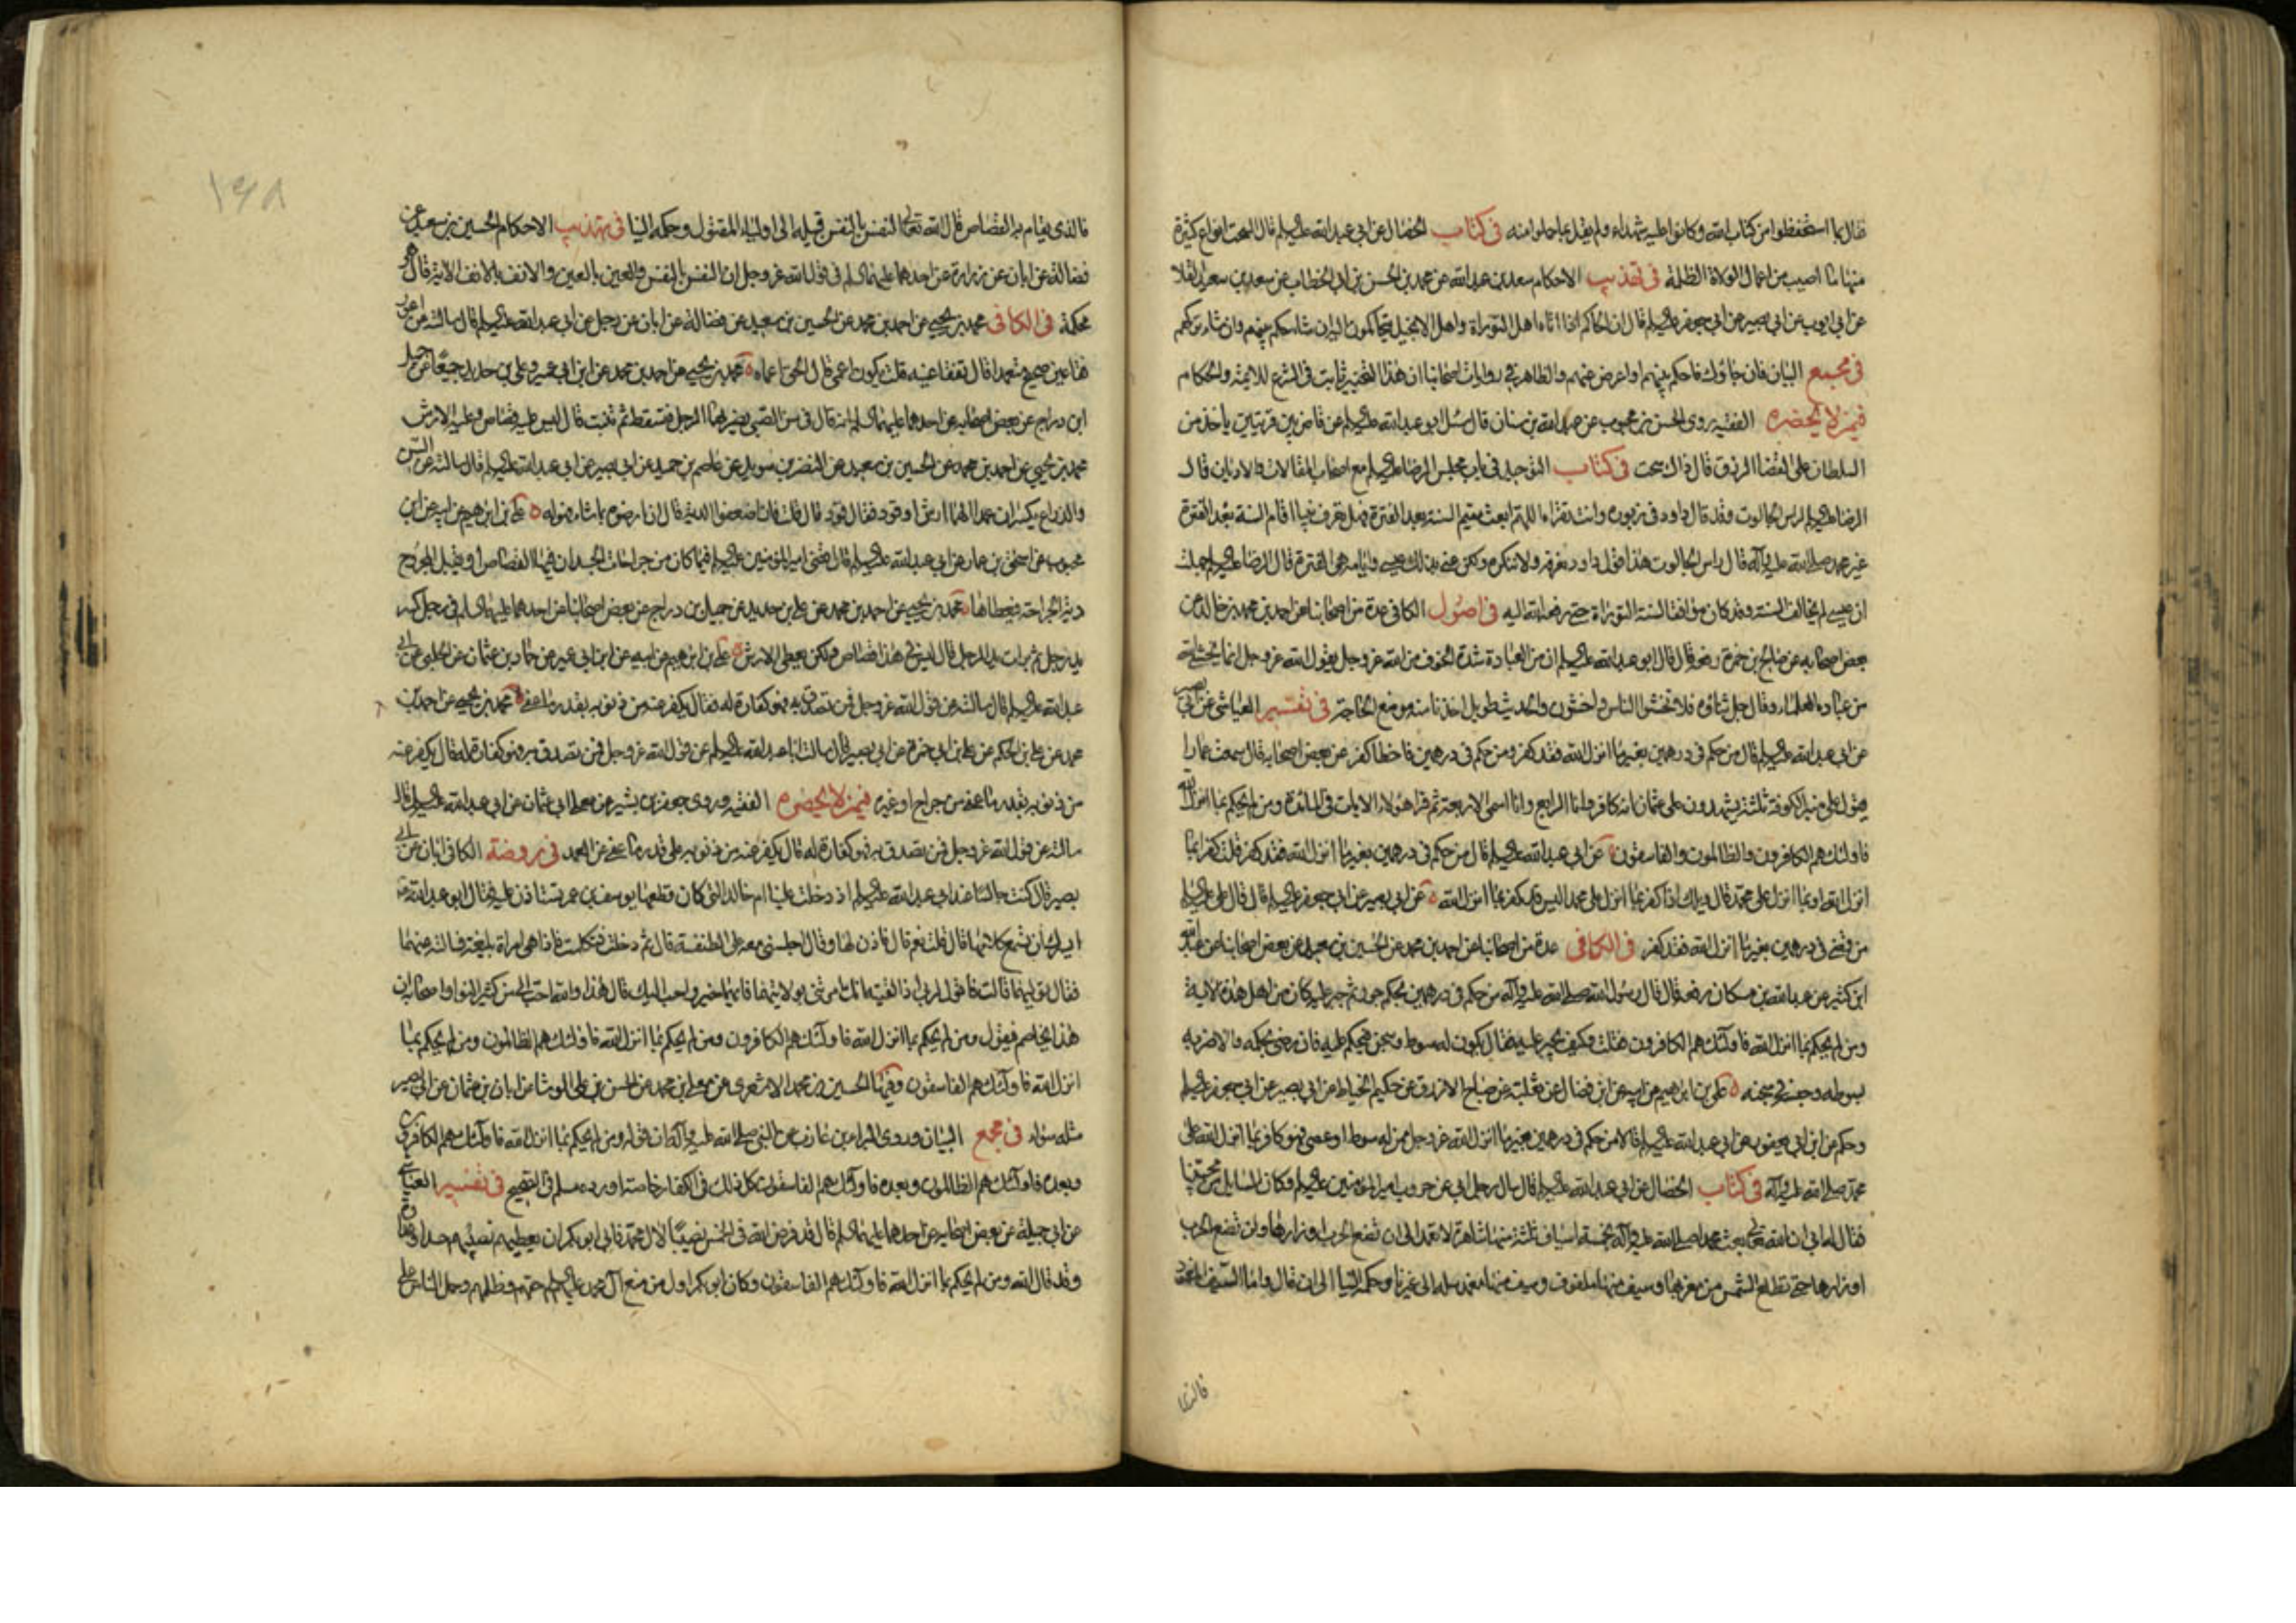 فقال بما استحفظوا من كتاب الله وكانوا عليه شهداء ولم يقل بما حملوا منه في كتاب الخصال عن ابي عبد الله عليه السلم قال السحت انواع كثيرة
منها ما اصيب من اعمال الولاة الظلمة في تهذيب الاحكام سعد بن عبد الله عن محمد بن الحسن بن ابي الخطاب عن سعد بن سعد
عن ابي ايوب عن ابي بصير عن ابي جعفر عليه السلم قال ان الحاكم اذا اتاه اهل التوراة واهل الانجيل يتحاكمون اليه ان شاء حكم بينهم وان شاء تركهم
في مجمع البيان فان جاؤك فاحكم بينهم او اعرض عنهم والظاهر في روايات اصحابنا ان هذا التخيير ثابت في الشرع للائمة والحكام
فيمن لا يحضره الفقيه روى الحسن بن محبوب عن عبد الله بن سنان قال سئل ابو عبد الله عليه السلم عن قاض بين قريتين ياخذ من
السلطان على القضا الرزق قال ذاك سحت في كتاب التوحيد في باب مجلس الرضا عليه السلم مع اصحاب المقالات والاديان قال
الرضا عليه السلم لراس الجالوت وقد قال داود في زبوره وانت تقراه اللهم ابعث مقيم السنة بعد الفترة فهل تعرف نبيا اقام السنة بعد الفترة
غير محمد صلى الله عليه وآله قال راس الجالوت هذا قول داود نعرفه ولا ننكره ولكن عنى بذلك عيسى وايامه هي الفترة قال الرضا عليه السلم جهلت
ان عيسى لم يخالف السنة وقد كان موافقا لسنة التوراة حتى رفعه الله اليه في اصول الكافي عدة من اصحابنا عن احمد بن محمد بن خالد عن
بعض اصحابه عن صالح بن حمزة رفعه قال قال ابو عبد الله عليه السلم ان من العبادة شدة الخوف من الله عز وجل يقول الله عز وجل انما يخشى الله
من عباده العلماء وقال جل ثناؤه فلا تخشوا الناس واخشون والحديث طويل اخذنا منه موضع الحاجة في تفسير العياشي عن ابي بصير
عن ابي عبد الله عليه السلم قال من حكم في درهمين بغير ما انزل الله فقد كفر ومن حكم في درهمين فاخطا كفر عن بعض اصحابه قال سمعت عمارا
يقول على منبر الكوفة ثلثة يشهدون على عثمان انه كافر وانا الرابع وانا اسمى الاربعة ثم قرا هؤلاء الايات في المائدة ومن لم يحكم بما انزل الله
فاولئك هم الكافرون والظالمون والفاسقون عن ابي عبد الله عليه السلم قال من حكم في درهمين بغير ما انزل الله فقد كفر قلت كفر بما
انزل الله او بما انزل على محمد قال ويلك اذا كفر بما انزل على محمد اليس قد كفر بما انزل الله عن ابي بصير عن ابي جعفر عليه السلم قال قال علي عليه السلم
من قضى في درهمين بغير ما انزل الله فقد كفر في الكافي عدة من اصحابنا عن احمد بن محمد عن الحسين بن سعيد عن بعض اصحابنا عن عبد الله
ابن كثير عن عبد الله بن مسكان رفعه قال قال رسول الله صلى الله عليه وآله من حكم في درهمين بحكم جور ثم جبر عليه كان من اهل هذه الاية
ومن لم يحكم بما انزل الله فاولئك هم الكافرون فقلت وكيف يجبر عليه فقال يكون له سوط وسجن فيحكم عليه فان رضي بحكمه والا ضربه
بسوطه وحبسه في سجنه علي بن ابراهيم عن ابيه عن ابن فضال عن ثعلبة عن صباح الازرق عن حكيم الخياط عن ابي بصير عن ابي جعفر عليه السلم
وحكم عن ابن ابي يعفور عن ابي عبد الله عليه السلم قالا من حكم في درهمين بغير ما انزل الله عز وجل ممن له سوط او عصى فهو كافر بما انزل الله على
محمد صلى الله عليه وآله في كتاب الخصال عن ابي عبد الله عليه السلم قال سال رجل ابي عن حروب امير المؤمنين عليه السلم وكان السائل من محبينا
فقال له ابي ان الله تعالى بعث محمدا صلى الله عليه وآله بخمسة اسياف ثلثة منها شاهرة لا تغمد الى ان تضع الحرب اوزارها ولن تضع الحرب
اوزارها حتى تطلع الشمس من مغربها وسيف منها ملفوف وسيف منها مغمد سله الى غيرنا وحكمه الينا الى ان قال واما السيف المغمد
فالذي
فالذي يقام به القصاص قال الله تعالى النفس بالنفس فسله الى اولياء المقتول وحكمه الينا في تهذيب الاحكام الحسين بن سعيد عن
فضالة عن ابان عن زرارة عن احدهما عليهما السلم في قول الله عز وجل ان النفس بالنفس والعين بالعين والانف بالانف الاية قال هي
محكمة في الكافي محمد بن يحيى عن احمد بن محمد عن الحسين بن سعيد عن فضالة عن ابان عن رجل عن ابي عبد الله عليه السلم قال سالته عن اعور
فقا عين صحيح متعمدا قال تفقا عينه قلت يكون اعمى قال الحق اعماه محمد بن يحيى عن احمد بن محمد عن ابن ابي عمير وعلي بن حديد جميعا عن جميل
ابن دراج عن بعض اصحابه عن احدهما عليهما السلم انه قال في سن الصبي يضربها الرجل فتسقط ثم تنبت قال ليس عليه قصاص وعليه الارش
محمد بن يحيى عن احمد بن محمد عن الحسين بن سعيد عن النضر بن سويد عن عاصم بن حميد عن ابي بصير عن ابي عبد الله عليه السلم قال سالته عن السن
والذراع يكسران عمدا الهما ارش او قود فقال قود قال قلت فان اضعفوا الدية قال ان ارضوه بما شاء فهو له علي بن ابراهيم عن ابيه عن ابن
محبوب عن اسحق بن عمار عن ابي عبد الله عليه السلم قال قضى امير المؤمنين عليه السلم فيما كان من جراحات الجسد ان فيها القصاص او يقبل المجروح
دية الجراحة فيعطاها محمد بن يحيى عن احمد بن محمد عن علي بن حديد عن جميل بن دراج عن بعض اصحابنا عن احدهما عليهما السلم في رجل كسر
يد رجل ثم برات يد الرجل قال ليس في هذا قصاص ولكن يعطى الارش علي بن ابراهيم عن ابيه عن ابن ابي عمير عن حماد بن عثمان عن الحلبي عن ابي
عبد الله عليه السلم قال سالته عن قول الله عز وجل فمن تصدق به فهو كفارة له فقال يكفر عنه من ذنوبه بقدر ما عفى محمد بن يحيى عن احمد بن
محمد عن علي بن الحكم عن علي بن ابي حمزة عن ابي بصير قال سالت ابا عبد الله عليه السلم عن قول الله عز وجل فمن تصدق به فهو كفارة له قال يكفر عنه
من ذنوبه بقدر ما عفى من جراح او غيره فيمن لا يحضره الفقيه وروى جعفر بن بشير عن معلى ابي عثمان عن ابي عبد الله عليه السلم قال
سالته عن قول الله عز وجل فمن تصدق به فهو كفارة له قال يكفر عنه من ذنوبه على قدر ما عفى عن العمد في روضة الكافي ابان عن ابي
بصير قال كنت جالسا عند ابي عبد الله عليه السلم اذ دخلت علينا ام خالد التي كان قطعها يوسف بن عمر تستاذن عليه فقال ابو عبد الله
ايسرك ان تسمع كلامها قال قلت نعم قال فاذن لها وقال اجلسني معه على الطنفسة قال ثم دخلت فتكلمت فاذا هي امراة بليغة فسالته عنهما
فقال توليهما قالت فاقول لربي اذا لقيته انك امرتني بولايتهما قال نعم هذا والله احب الي من كثير النوا واصحابه ان
هذا يخاصم فيقول ومن لم يحكم بما انزل الله فاولئك هم الكافرون ومن لم يحكم بما انزل الله فاولئك هم الظالمون ومن لم يحكم بما
انزل الله فاولئك هم الفاسقون وفيها الحسين بن محمد الاشعري عن معلى بن محمد عن الحسن بن علي الوشا عن ابان بن عثمان عن ابي بصير
مثله سواء في مجمع البيان وروى البراء بن عازب عن النبي صلى الله عليه وآله ان قوله ومن لم يحكم بما انزل الله فاولئك هم الكافرون
وبعده فاولئك هم الظالمون وبعده فاولئك هم الفاسقون كل ذلك في الكفار خاصة اورده مسلم في الصحيح في تفسير العياشي
عن ابي جميلة عن بعض اصحابه عن احدهما عليهما السلم قال قد فرض الله في الخمس نصيبا لآل محمد فابى ابو بكر ان يعطيهم نصيبهم حسدا وعداوة
وقد قال الله ومن لم يحكم بما انزل الله فاولئك هم الفاسقون وكان ابو بكر اول من منع آل محمد عليهم السلم حقهم وظلمهم وحمل الناس على
١٦٨